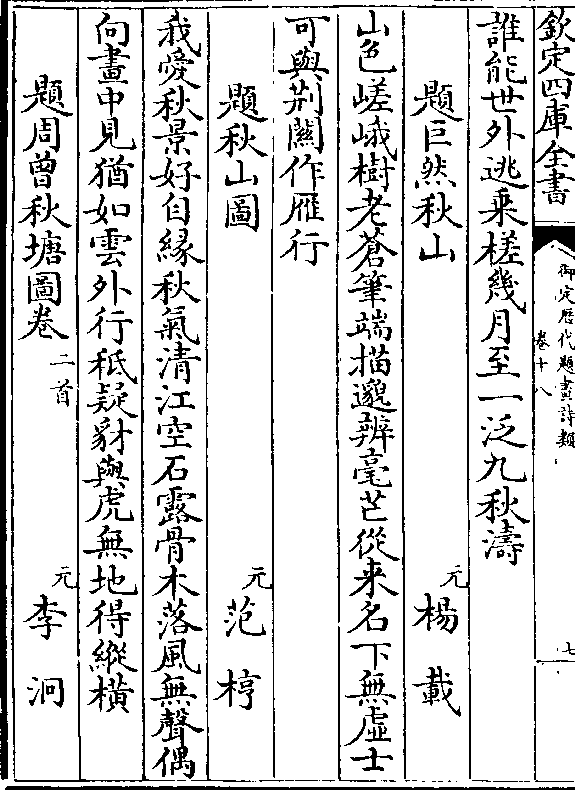 欽定四庫全書
御定歷代題畫詩類
卷十八
七
誰能世外逃乘槎幾月至一泛九秋濤
題巨然秋山
元
楊載
山色嵯峨樹老蒼筆端描邈辨毫芒從来名下無虚士
可與荆關作雁行
題秋山圖
元
范梈
我愛秋景好自緣秋氣清江空石露骨木落風無聲偶
向畫中見猶如雲外行秪疑豺與虎無地得縱横
題周曾秋塘圖卷
二首
元
李泂